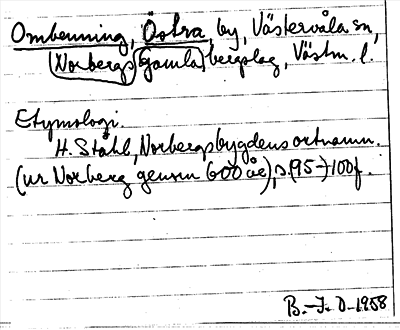 Ombenning, Östra, by, Västervåla sn,
(Norbergs gamla) bergslag, Västm. l.
Etymologi.
H. Ståhl, Norbergsbygdens ortnamn.
(ur Norberg genom 600 år), s. (95-)100f.
B.-I. D. 1958